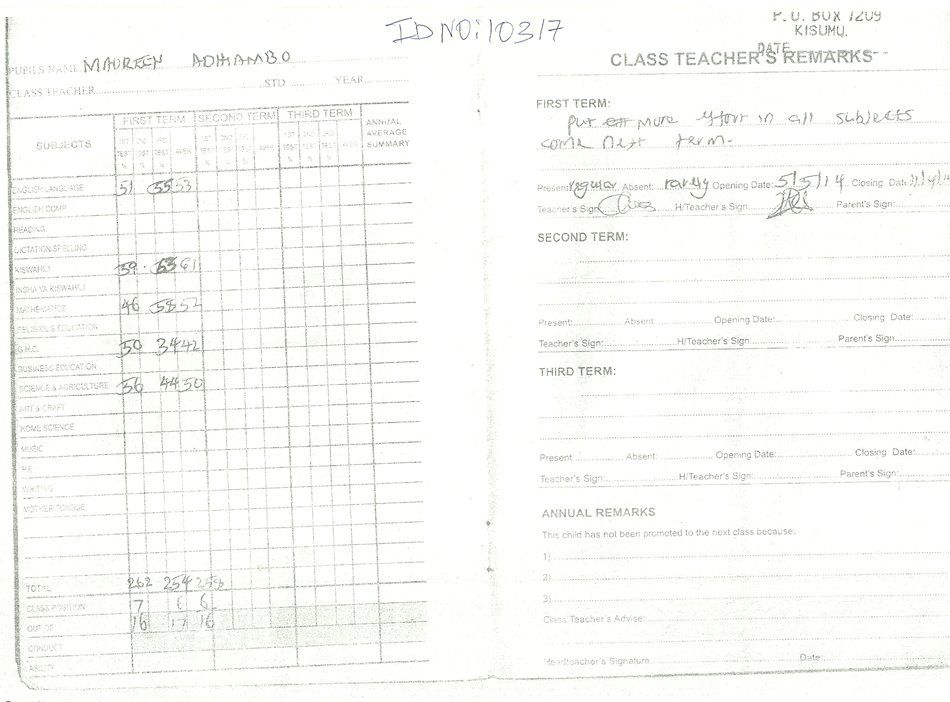 ID NO: 10317
P. O. BOX 1209
KISUMU.
DATE
PUPILS NAME MAUREEN ADHIAMBO
CLASS TEACHER STD YEAR
SUBJECTS FIRST TERM SECOND TERM THIRD TERM ANNUAL AVERAGE SUMMARY
1ST TEST % 2ND TEST % 3RD TEST % AVER. 1ST TEST % 2ND TEST % 3RD TEST % AVER. 1ST TEST % 2ND TEST % 3RD TEST %
ENGLISH LANGUAGE 51 55 53
ENGLISH COMP.
READING
DICTATION/SPELLING
KISWAHILI 59 63 61
INSHA YA KISWAHILI
MATHEMATICS 46 58 52
RELIGIOUS EDUCATION
G.H.C. 50 34 42
BUSINESS EDUCATION
SCIENCE & AGRICULTURE 56 44 50
ART & CRAFT
HOME SCIENCE
MUSIC
P.E
WRITING
MOTHER TONGUE
TOTAL 262 254 258
CLASS POSITION 7 6 6
OUT OF 16 17 16
CONDUCT
ABILITY
CLASS TEACHER'S REMARKS
FIRST TERM:
put more effort in all subjects
come next term.
Present: regular Absent: rarely Opening Date: 5/5/14 Closing Date
Teacher's Sign H/Teacher's Sign Parent's Sign:
SECOND TERM:
Present: Absent: Opening Date: Closing Date:
Teacher's Sign: H/Teacher's Sign Parent's Sign:
THIRD TERM:
Present Absent: Opening Date: Closing Date:
Teacher's Sign: H/Teacher's Sign: Parent's Sign:
ANNUAL REMARKS
This child has not been promoted to the next class because:
1)
2)
3)
Class Teacher's Advise:
Headteacher's Signature Date: